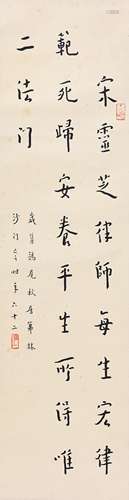 宋靈芝律師每生宏律
範死歸安養平生所得唯
二法门
歲鶉尾秋居林
沙门時年六十二